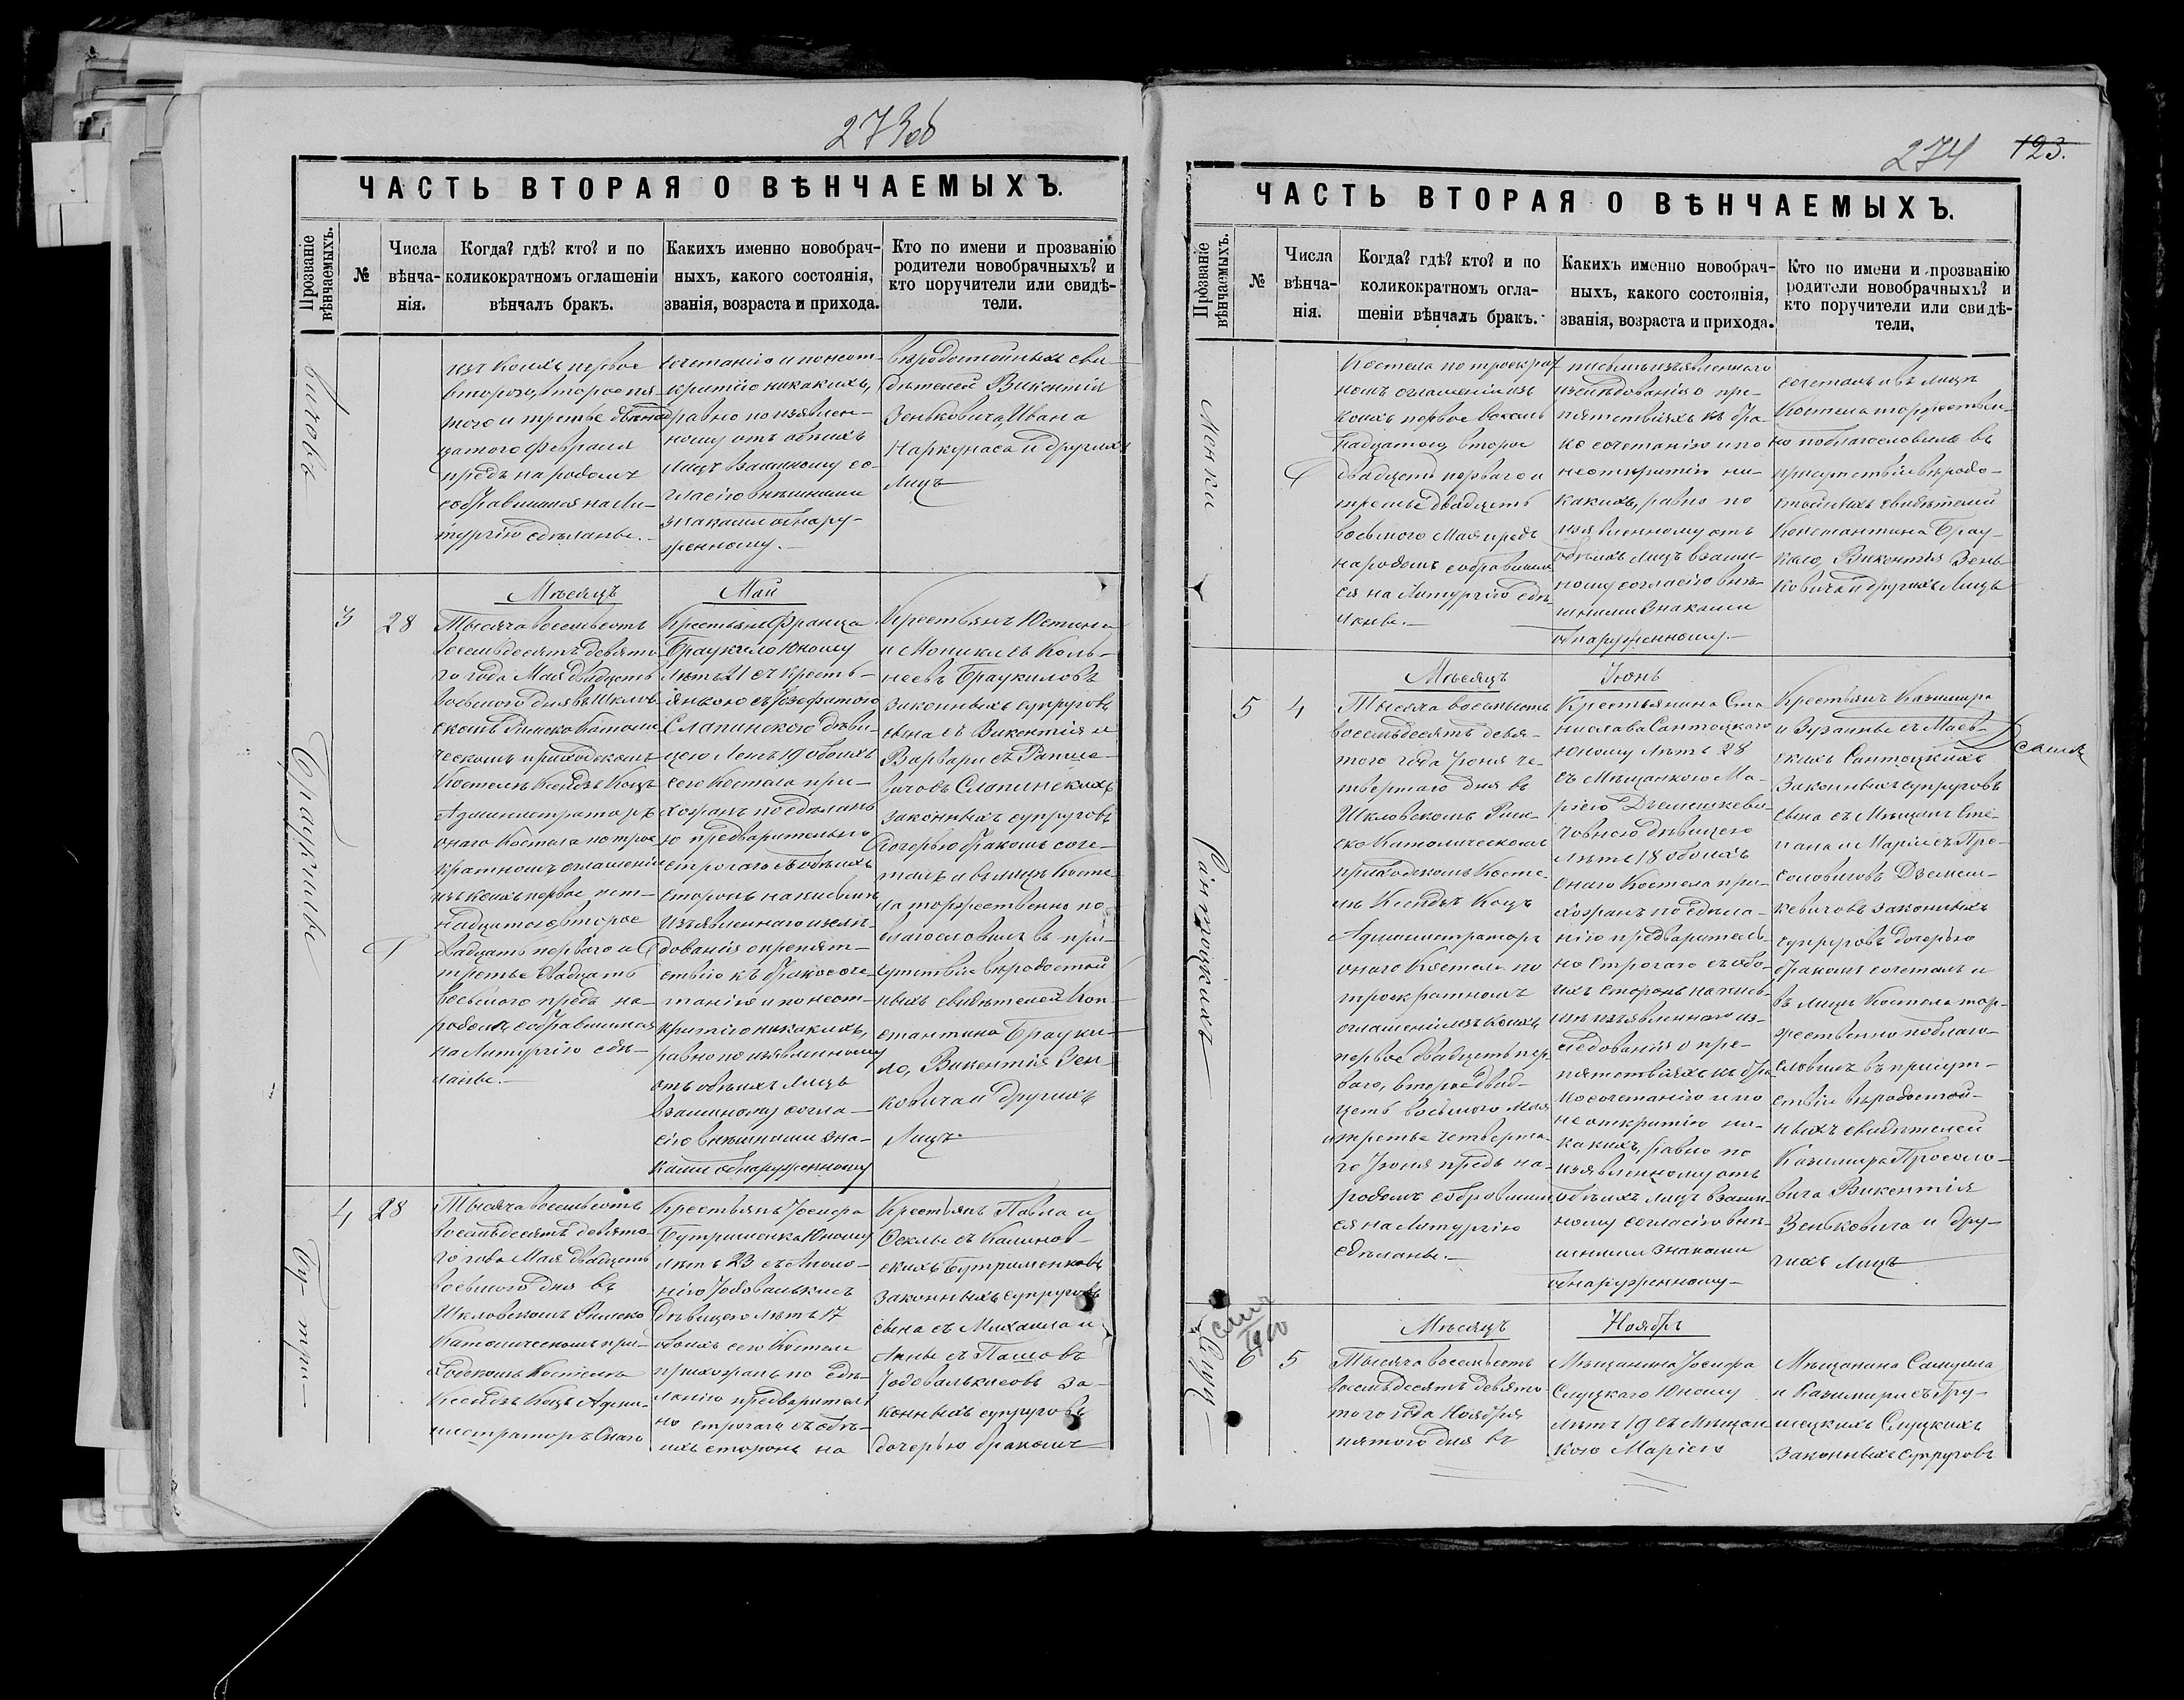 273об
ЧАСТЬ ВТОРАЯ О ВѢНЧАЕМЫХЪ.
Прозваніе вѣнчаемыхъ.
№
Числа
вѣнча-
нія.
Когда? гдѣ? кто? и по
коликократномъ оглашеніи
вѣнчалъ бракъ.
Какихъ именно новобрач-
ныхъ, какого состоянія,
званія, возраста и прихода.
Кто по имени и прозванію
родители новобрачныхъ? и
кто поручители или свидѣ-
тели.
изъ коихъ первое
втораго, второе пя
того и третье
цатаго Февраля
предъ народомъ
собравшимся на Ли-
тургію сдѣланы.
сочетанію и по неот-
крытію никакихъ,
равно по изъявлен-
ному отъ обѣихъ
лицъ взаимному со-
гласію внѣшними
знаками обнару-
женному.
вѣродостойныхъ сви-
дѣтелей Викентія
Зеньковича, Ивана
Наркунаса и другихъ
Лицъ
Браукиле
3
28
Мѣсяцъ
Тысяча восемьсотъ
восемьдесятъ девято
го года Мая двадцать
восьмого дня въ Шклов
скомъ Римско Католи
ческомъ приходскомъ
Костелѣ Ксендзъ Коцъ
Администраторъ
онаго Костела по трое
кратномъ оглашеніи
изъ коихъ первое пят-
надцатаго, второе
двадцать перваго и
третье двадцать
восьмого предъ на-
родомъ собравшимся
на Литургію сдѣ-
ланы.
Май
Крестьянъ Франца
Браукило Юношу
Лѣтъ 21 съ кресть-
янкою Іозефатою
Слапинскою дѣви-
цею Летъ 19 обоихъ
сего Костела при-
хожанъ по сдѣлані
ю предварительно
строгаго съ обѣихъ
сторонъ на письмѣ
изъявленнаго изслѣ-
дованія о препят-
ствію къ бракосоче-
танію и по неот-
крытію никакихъ,
равно по изъявленному
отъ обѣихъ Лицъ
взаимному согла-
сію внѣшними зна-
ками обнаруженному
Крестьянъ Юстина
и Моники съ Коль-
неевъ Браукиловъ
законныхъ супруговъ
сына съ Викентія и
Варвары съ
Слапинскихъ
законныхъ супруговъ
дочерью бракомъ соче-
талъ и въ лицѣ Косте
ла торжественно по-
благословилъ въ при-
сутствіи вѣродостой
ныхъ свидѣтелей Кон-
стантина Брауки-
ло, Викентія Зен-
ковича и другихъ
Лицъ.
Бу-три-
4
28
Тысяча восемьсотъ
восемьдесятъ девято
го года Мая двадцать
восьмого дня въ
Шкловскомъ Римско
Католическомъ при-
ходскомъ Костелѣ
Ксендзъ Коцъ Адми-
нистраторъ Онаго
Крестьянъ Іосифа
Бутрименка Юношу
Лѣтъ 23 съ Аполо-
ніею Іодовалькисъ
Дѣвицею лѣтъ 17
обоихъ сего Костела
прихожанъ по сдѣ-
ланію предварител
но строгаго съ обѣ-
ихъ сторонъ на
Крестьянъ Павла и
Феклы съ Калинов-
скихъ Бутрименковъ
законныхъ супруговъ
сына съ Михаила и
Анны съ Пашовъ
Іодовалькисовъ за-
конныхъ супруговъ
дочерью бракомъ
274 123.
ЧАСТЬ ВТОРАЯ О ВѢНЧАЕМЫХЪ.
Прозваніе вѣнчаемыхъ.
№
Числа
вѣнча-
нія.
Когда? гдѣ? кто? и по
коликократномъ огла-
шеніи вѣнчалъ бракъ.
Какихъ именно новобрач-
ныхъ, какого состоянія,
званія, возраста и прихода.
Кто по имени и прозванію
родители новобрачныхъ? и
кто поручители или свидѣ-
тели.
менки
Костела по троекрат
номъ оглашеніи изъ
коихъ первое
надцатаго, второе
двадцать перваго и
третье двадцать
восьмого Мая предъ
народомъ собравшим
ся на Литургію сдѣ-
ланы.
письмѣ изъявленнаго
изслѣдованія о пре-
пятствіяхъ къ бра-
ко сочетанію и по
неоткрытію ни-
какихъ, равно по
изъявленному отъ
обѣихъ лицъ взаим-
ному согласію внѣ-
шними знаками
обнаруженному.
сочеталъ и въ лицѣ
Костела торжествен-
но поблагословилъ въ
присутствіи вѣродо-
стойныхъ свидѣтелей
Константина Брау-
кило, Викентія Зень-
ковича и другихъ Лицъ
Сантоцкихъ
5
4
Мѣсяцъ
Тысяча восемьсотъ
восемьдесятъ девя-
того года Іюня че-
твертаго дня въ
Шкловскомъ Рим-
ско Католическомъ
приходскомъ Косте-
лѣ Ксендзъ Коцъ
Администраторъ
онаго Костела по
троекратномъ
оглашеніи изъ коихъ
первое двадцать пер
ваго, второе двад-
цать восьмого Мая
и третье четверта-
го Іюня предъ на-
родомъ собравшим
ся на Литургію
сдѣланы.
Іюнь
Крестьянина Ста
нислава Сантоцкаго
Юношу Лѣтъ 28
съ Мѣщанкою Ма-
ріею Дземешкеви-
човною дѣвицею
Лѣтъ 18 обоихъ
онаго Костела при-
хожанъ по сдѣла-
нію предваритель-
но строгаго съ обо-
ихъ сторонъ на пись-
мѣ изъявленнаго из-
слѣдованія о пре-
пятствіяхъ къ бра
косочетанію и по
неоткрытію ни-
какихъ, равно по
изъявленному отъ
обѣихъ лицъ взаим-
ному согласію внѣ-
шними знаками
обнаруженному
Крестьянъ Казимира
и Зузанны съ Маев-
скихъ Сантоцкихъ
законныхъ супруговъ
сына съ Мѣщанъ Сте-
пана и Маріи съ Про-
соловичовъ Дземеш-
кевичовъ законныхъ
супруговъ дочерью
бракомъ сочеталъ и
въ лицѣ Костела тор-
жественно поблаго-
словилъ въ присут-
ствіи вѣродостой-
ныхъ свидѣтелей
Казимира Просоло-
вича Викентія
Зеньковича и дру-
гихъ Лицъ
Слуц-
1900
6
5
Мѣсяцъ
Тысяча восемьсотъ
восемьдесятъ девято
того года Ноября
пятого дня въ
Ноябрь
Мѣщанина Іосифа
Слуцкаго Юношу
лѣтъ 19 съ Мѣщан
кою Маріею
Мѣщанина Самуила
и Казимиры съ Гру-
шецкихъ Слуцкихъ
Законныхъ супруговъ